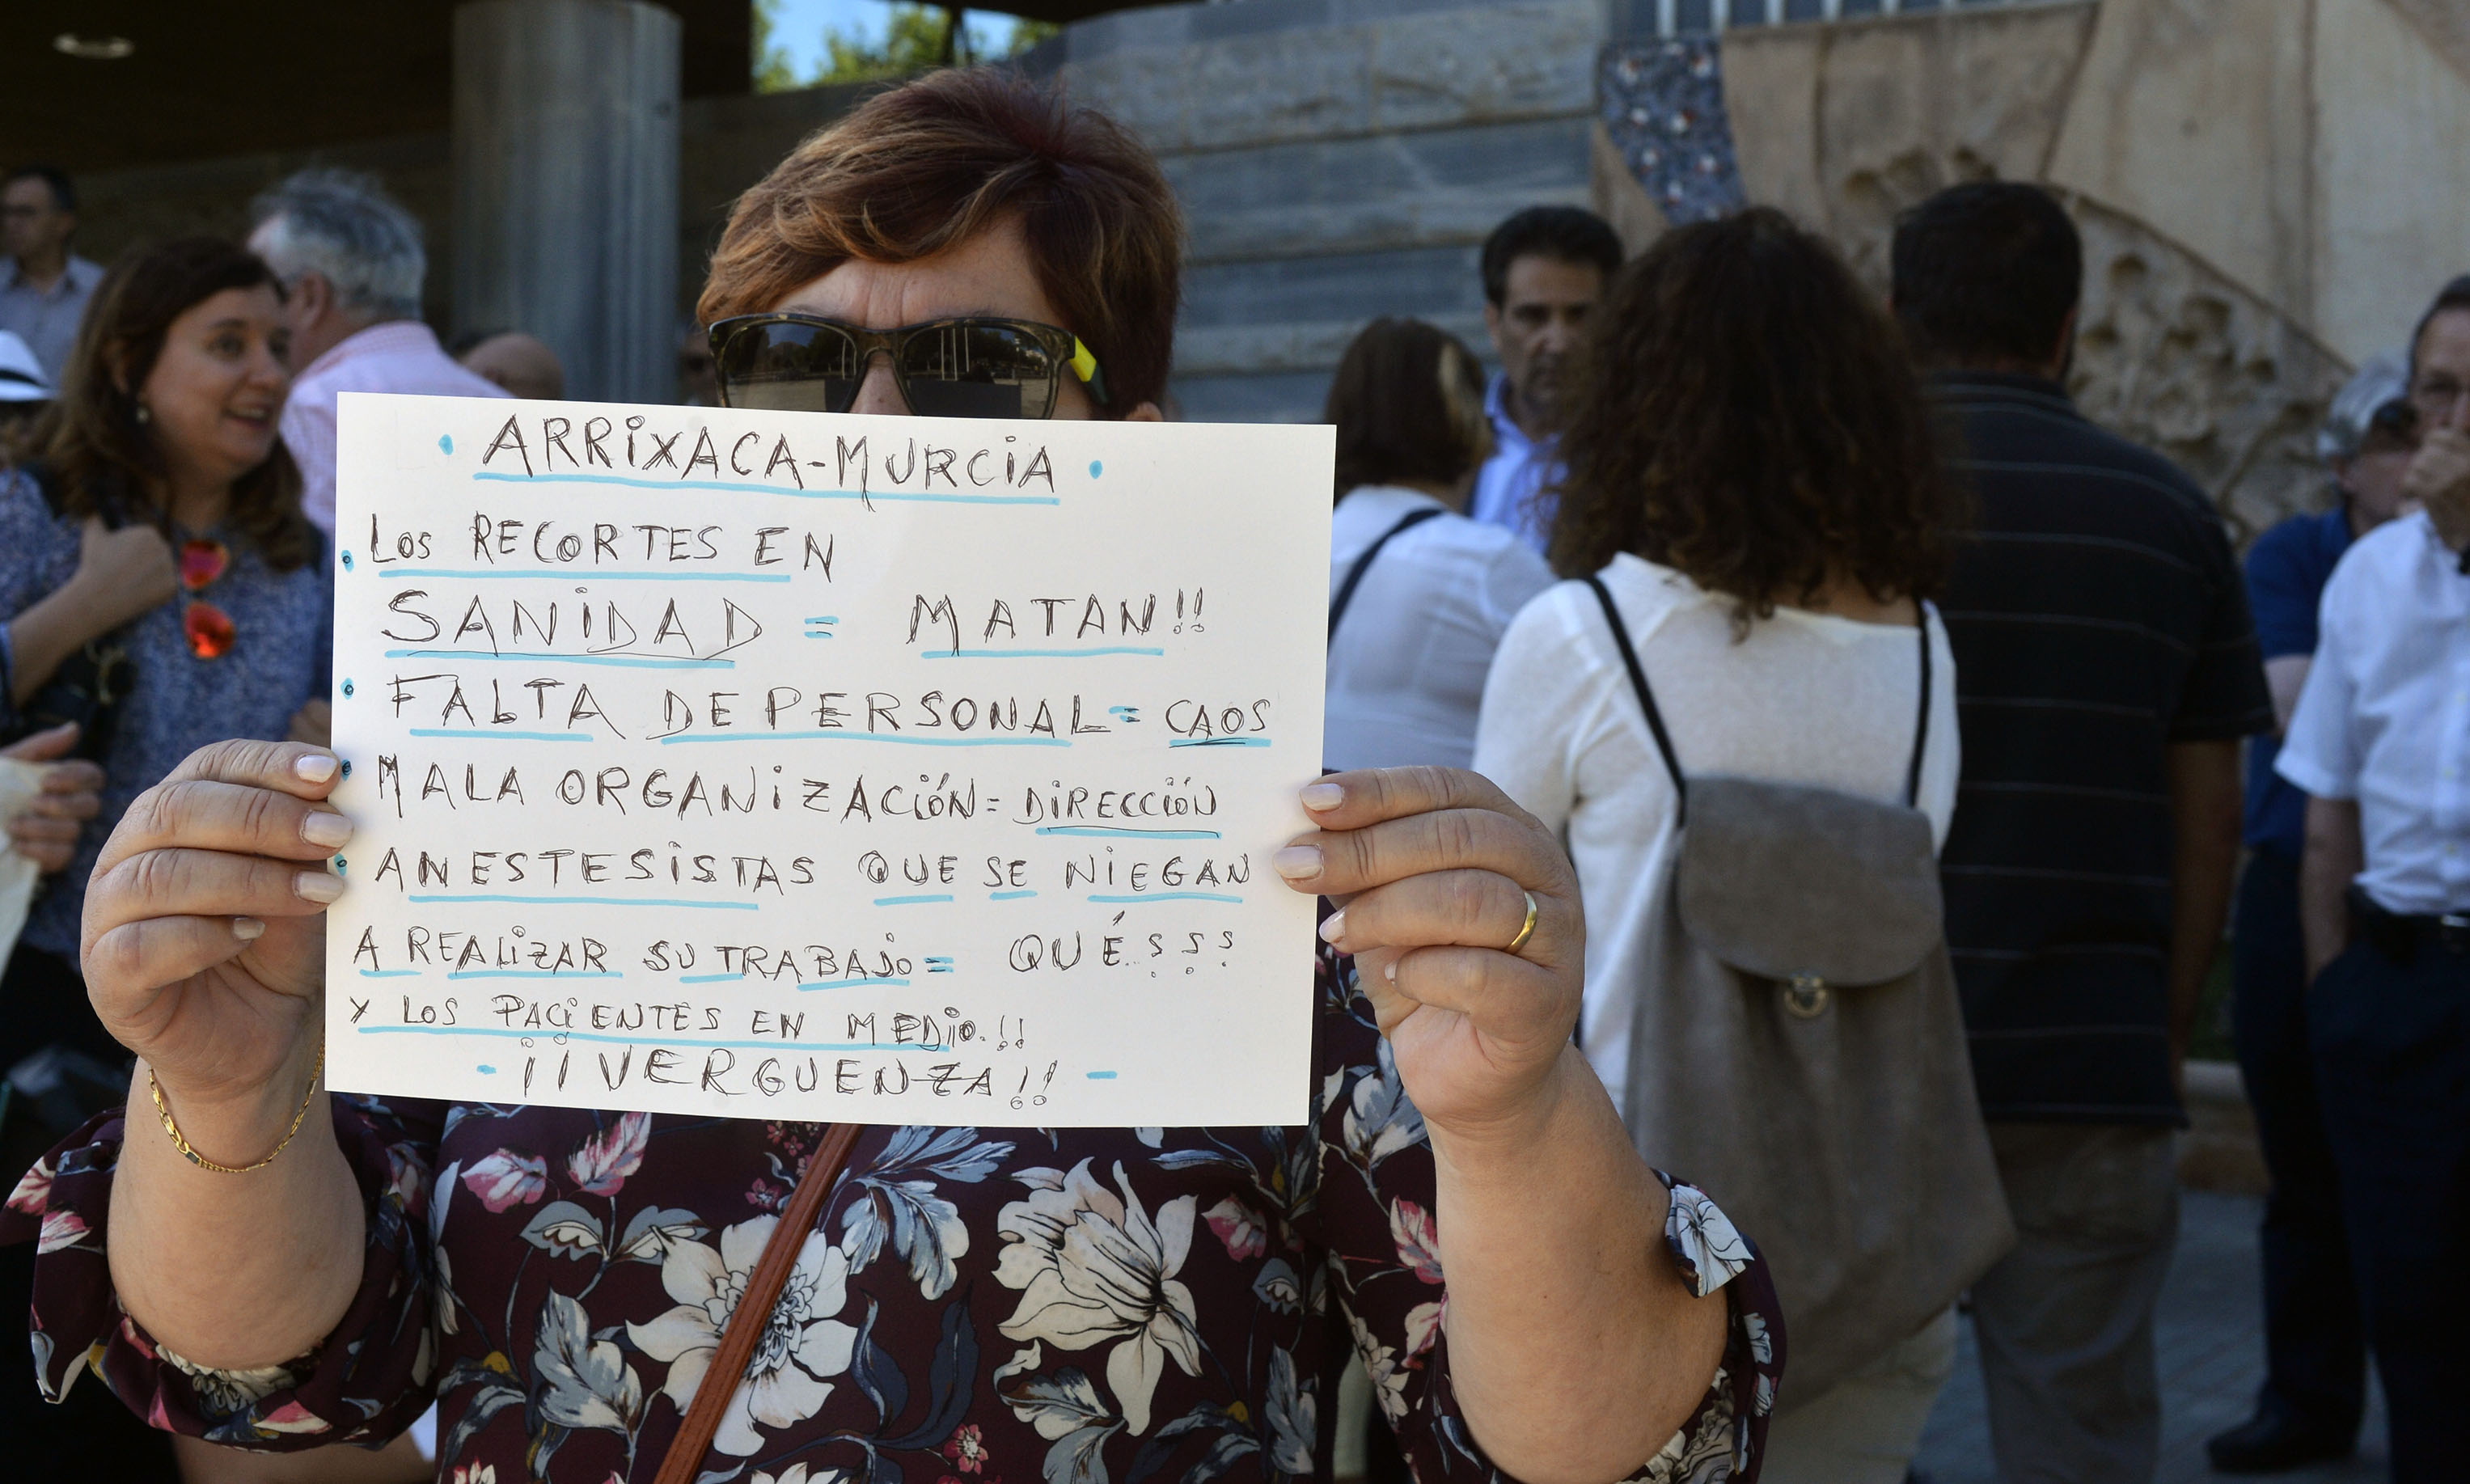 • ARRiXACA-MURCiA •
• LOS RECORTES EN
SANiDAD = MATAN!!
• FALTA DE PERSONAL = CAOS
• MALA ORGANiZACiÓN = DiRECCiÓN
• ANESTESiSTAS QUE SE NiEGAN
A REALiZAR SU TRABAJO = QUÉ???
Y LOS PACiENTES EN MEDiO.!!
- ¡¡VERGUENZA!! -